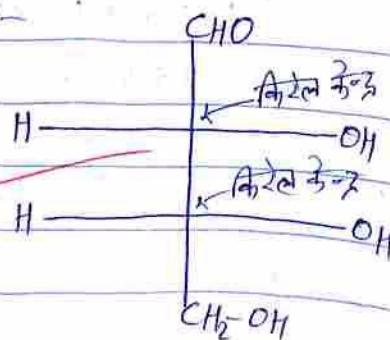 CHO
किरेल केन्द्र
H OH
किरेल केन्द्र
H OH
CH₂-OH